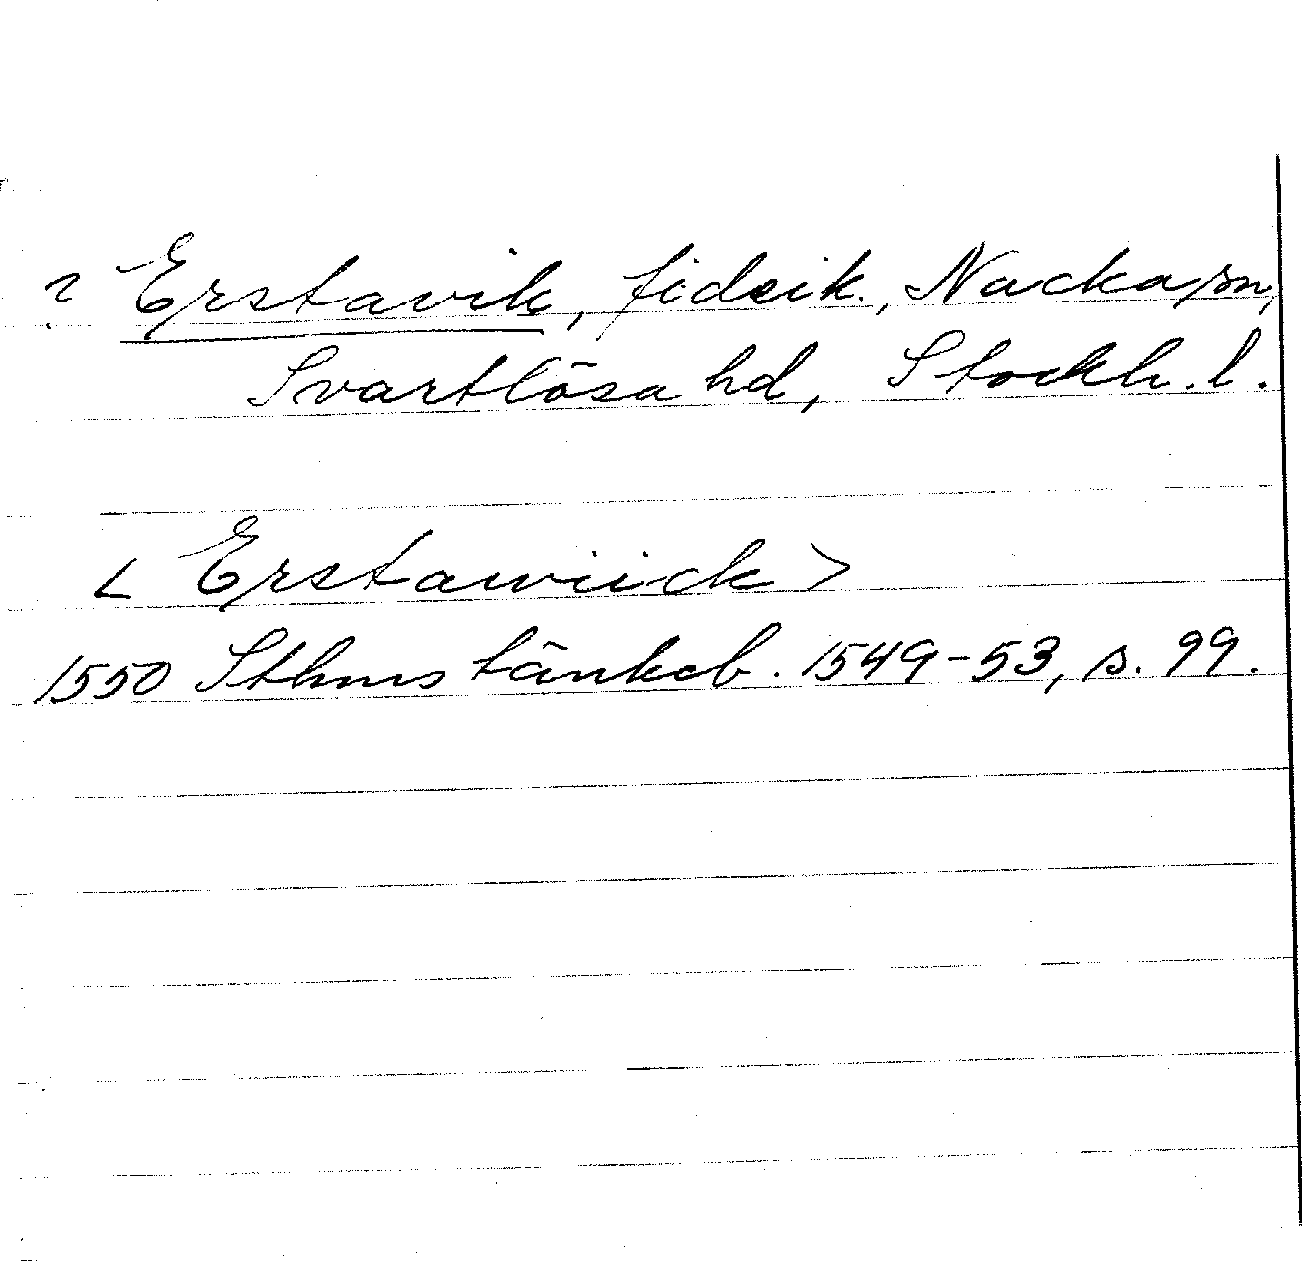 ? Erstavik, fideik., Nacka sn,
Svartlösa hd, Stockh. l.
< Erstawiick >
1550 Sthms tänkeb. 1549-53, s. 99.